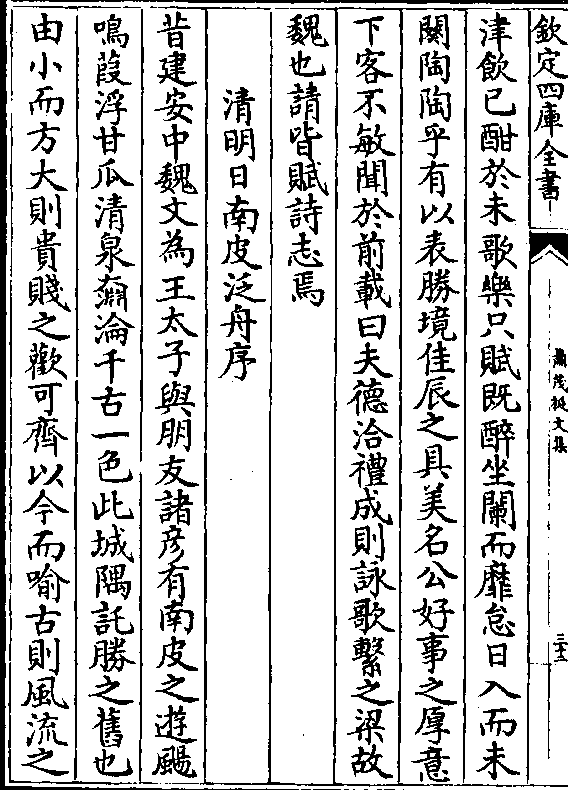 欽定四庫全書
蕭茂挺文集
津飲已酣於未歌樂只賦既醉坐闌而靡怠日入而未
闋陶陶乎有以表勝境佳辰之具美名公好事之厚意
下客不敏聞於前載曰夫德洽禮成則詠歌繫之梁故
魏也請皆賦詩志焉
清明日南皮泛舟序
昔建安中魏文為王太子與朋友諸彦有南皮之遊颺
鳴葭浮甘瓜清泉奫淪千古一色此城隅託勝之舊也
由小而方大則貴賤之歡可齊以今而喻古則風流之